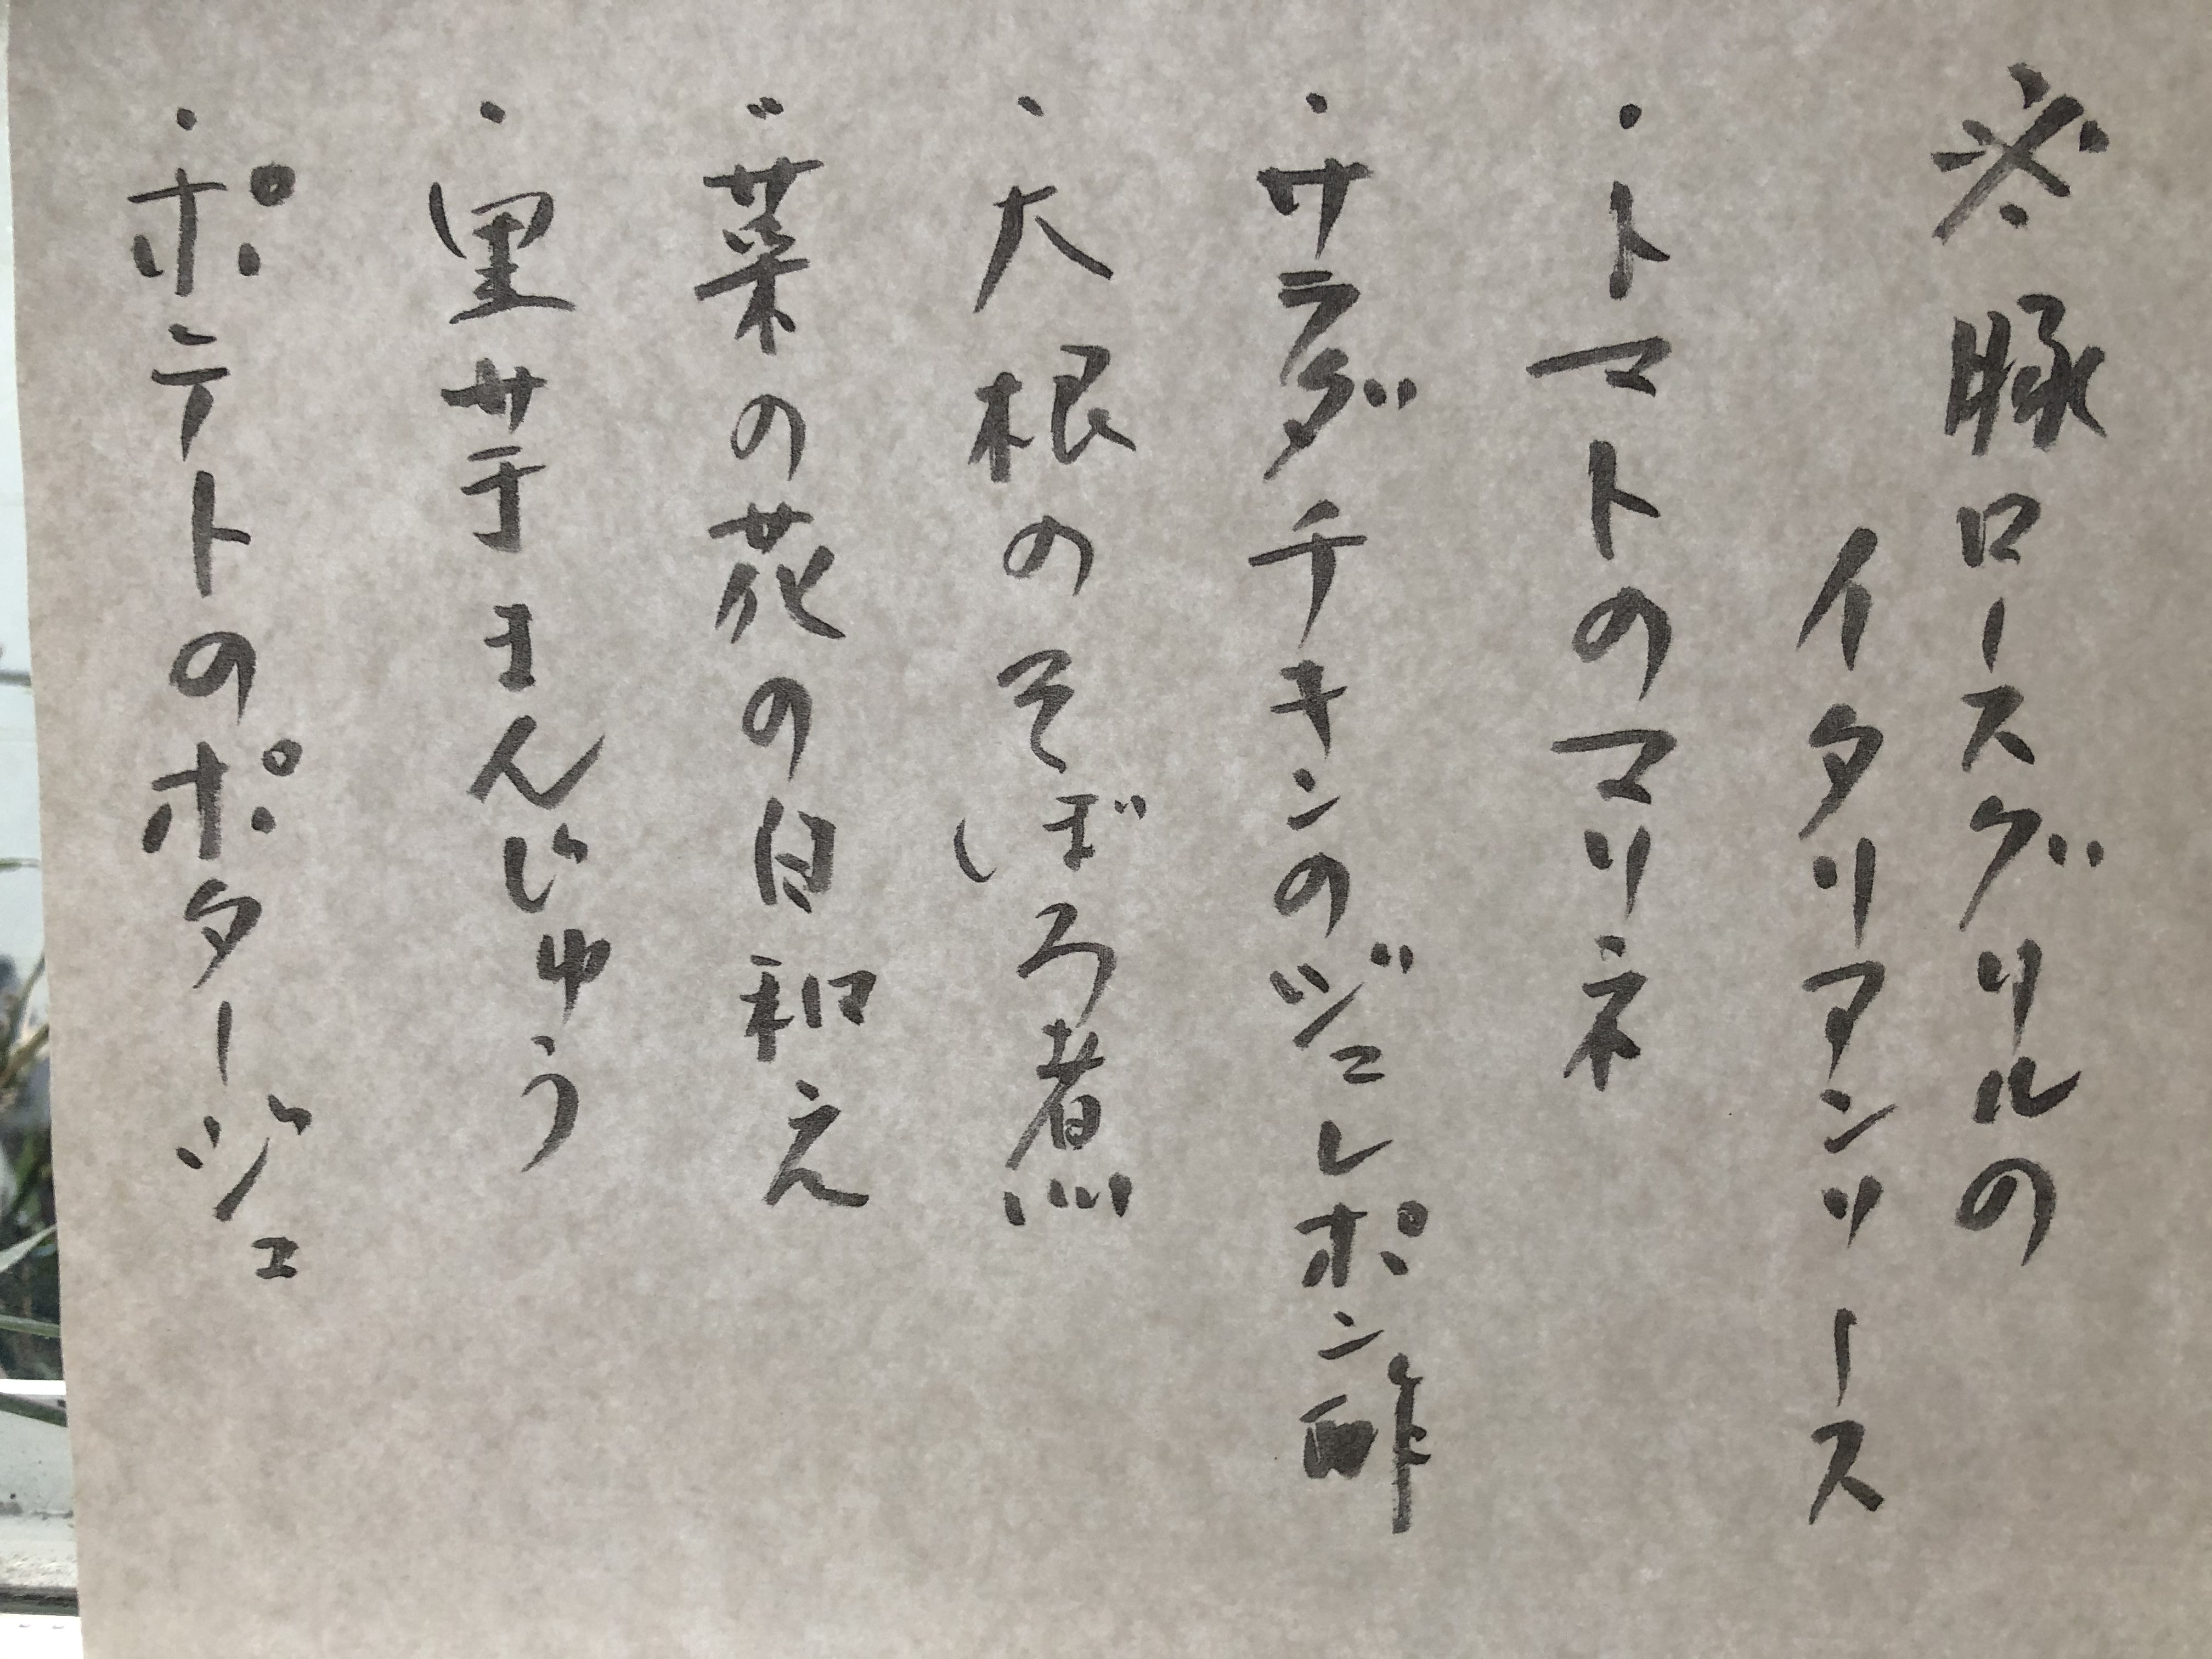 ※豚ロースグリルの
イタリアンソース
・トマトのマリネ
・サラダチキンのジュレポン酢
・大根のそぼろ煮
・菜の花の白和え
・里芋まんじゅう
・ポテトのポタージュ